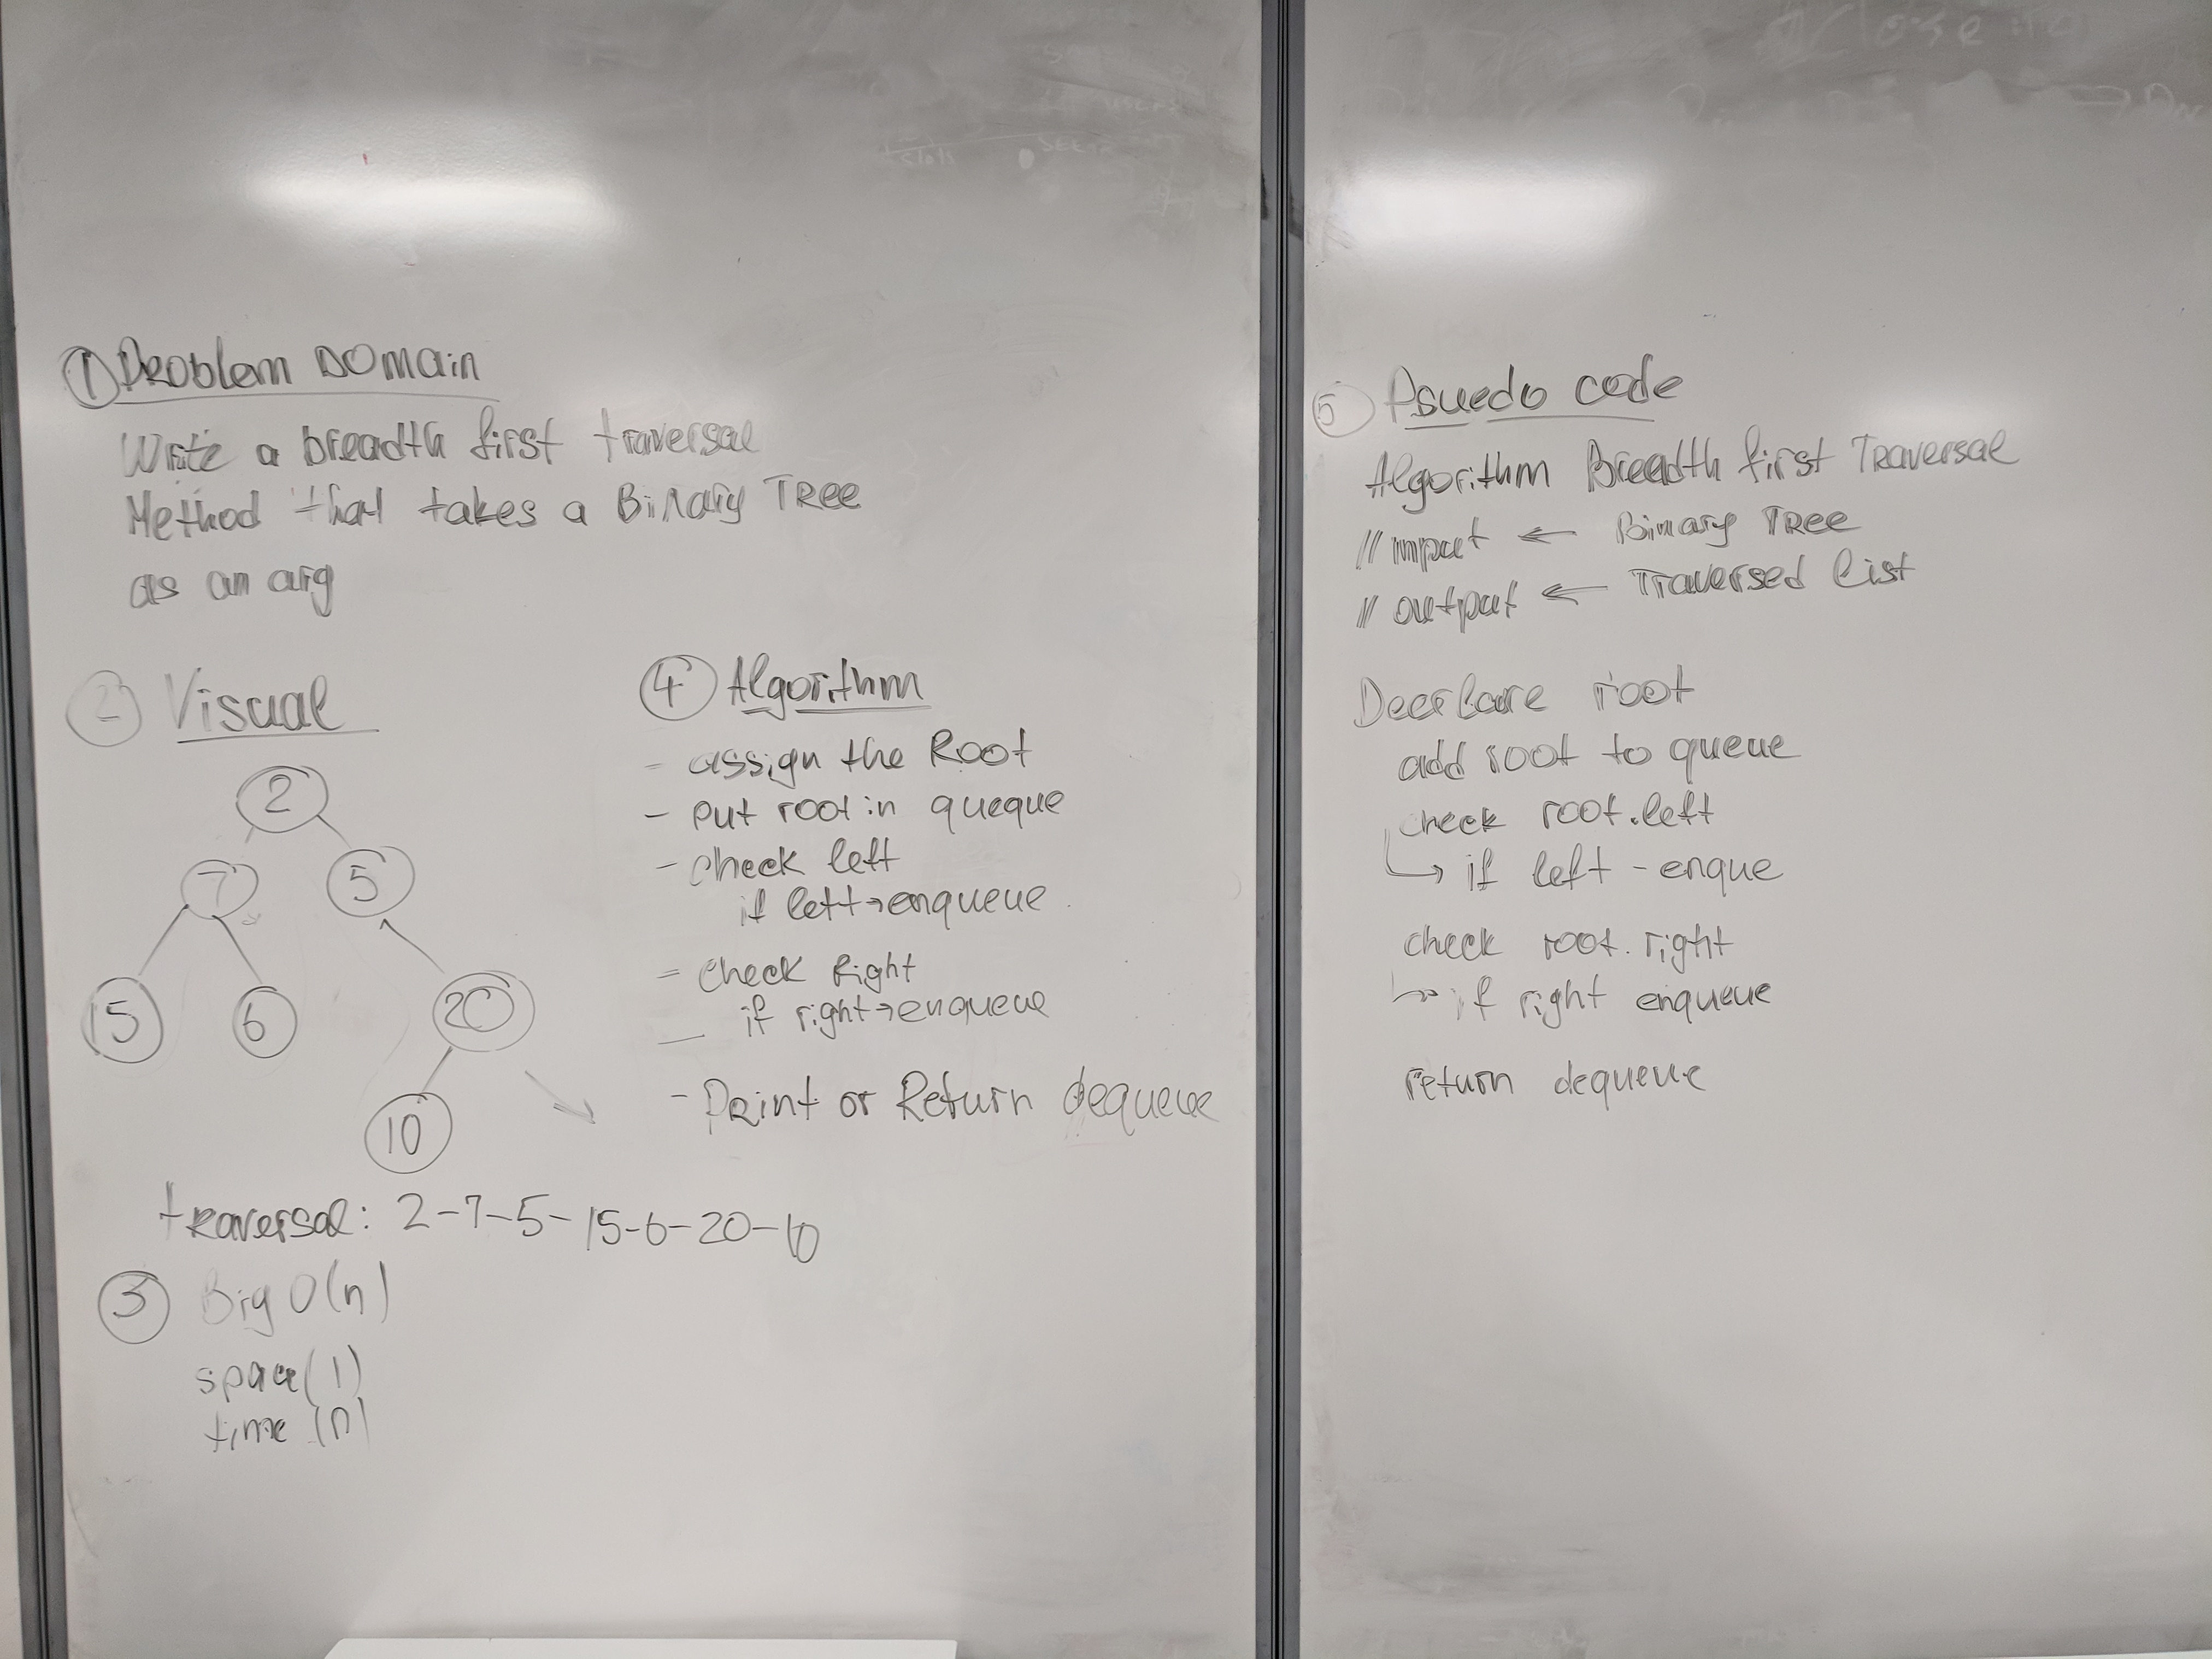 ① Problem Domain
Write a breadth first traversal
Method that takes a Binary Tree
as an arg
② Visual
2
7 5
15 6 20
10
traversal: 2-7-5-15-6-20-10
③ Big O(n)
space(1)
time (n)
④ Algorithm
- assign the Root
- put root in queque
- check left
if left→enqueue
- check Right
if right→enqueue
- Print or Return dequeue
⑤ Psuedo code
Algorithm Breadth first Traversal
// input ← Binary Tree
// output ← Traversed list
root
add root to queue
check root.left
↳ if left - enque
check root.right
↳ if right enqueue
return dequeue